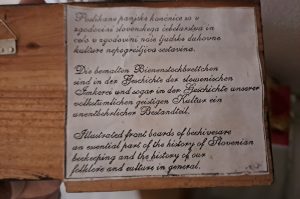 Poslikane panjske končnice so v
zgodovini slovenskega čebelarstva in
celo v zgodovini naše ljudske duhovne
kulture nepogrešljiva sestavina.
Die bemalten Bienenstockbrettchen
sind in der Geschichte der slowenischen
Imkerei und sogar in der Geschichte unserer
volkstümlichen geistigen Kultur ein
unentbehrlicher Bestandteil.
Illustrated front boards of beehives are
an essential part of the history of Slovenian
beekeeping and the history of our
folklore and culture in general.